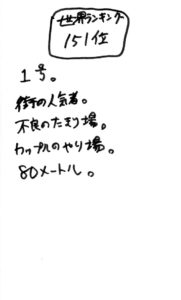 世界ランキング
151位
1号。
街の人気者。
不良のたまり場。
カップルのやり場。
80メートル。